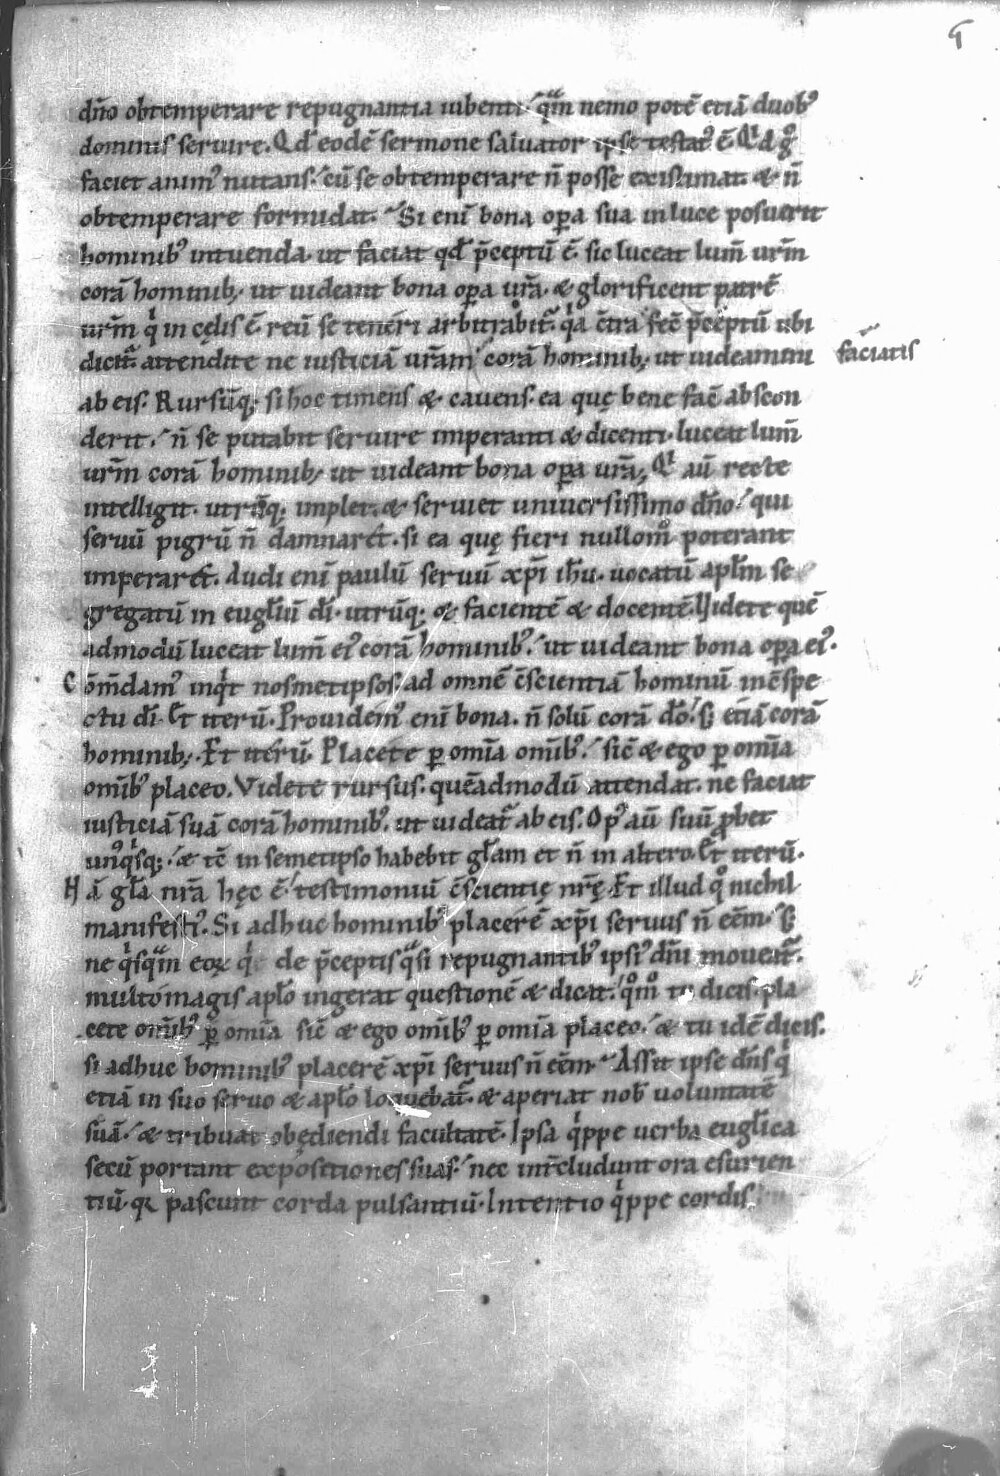 dño obtemperare repugnantia iubenti. qᵃm nemo potē etiā duob᾽
dominis seruire. Qd̄ eodē sermone saluator ipse testat᾽ ē. Qⁱd gͦ
faciet anim᾽ nutans. cū se obtemperare ñ posse existimat. & ñ
obtemperare formidat. Si eni bona oꝑa sua in luce posuerit
hominib᾽ intuenda. ut faciat qd̄ p̄ceptū ē. sic luceat lum̄ ur̄m
corā hominib; ut uideant bona oꝑa ur̄a. & glorificent patrē
ur̄m qⁱ in cęlis ē. reū se teneri arbitrabit᷑. qⁱa c̄tra fec̄ p̄ceptū ubi
dicit᷑. attendite ne iusticiā ur̄am corā hominib; ut uideamini
faciatis
ab eis. Rursūq; si hoc timens & cauens. ea quę bene fac̄ abscon
derit. ñ se putabit seruire imperanti & dicenti. luceat lum̄
ur̄m corā hominib; ut uideant bona oꝑa ur̄a. Qⁱ aū recte
intelligit. utrūq; implet. & seruiet uniuersissimo dño. qui
seruū pigrū ñ damnaret. si ea quę fieri nullomͦ poterant
imperaret. Audi eni paulū seruū xp̄i ih̄u. uocatū apl̄m se
gregatū in eugl̄iū dī. utrūq; & facientē & docentē. Uidete quē
admodū luceat lum̄ ei᾽ corā hominib᾽. ut uideant bona oꝑa ei᾽.
Cōm̄dam᾽ inqⁱt nosmetipsos ad omnē c̄scientiā hominū in c̄spe
ctu dī. Et iterū. Prouidem᾽ eni bona. ñ solū corā dō. s; etiā corā
hominib;. Et iterū. Placete ꝑ omīa omīb᾽. sic̄ & ego ꝑ omīa
omīb᾽ placeo. Videte rursus. quēadmodū attendat. ne faciat
iusticiā suā corā hominib᾽. ut uideat᷑ ab eis. Op᾽ aū suū ꝓbet
unqⁱsq;. & tc̄ in semetipso habebit gl̄am et ñ in altero. Et iterū.
Nā gl̄a nr̄a hęc ē. testimoniū c̄scientię nr̄ę. Et illud qͦ nichil
manifesti᾽. Si adhuc hominib᾽ placerē xp̄i seruus ñ eēm. s;
ne qⁱsqᵃm eoꝝ qⁱ de p̄ceptis qᵃsi repugnantib᾽ ipsi᾽ dñi moueat᷑.
multomagis apl̄o ingerat questionē & dicat. qͦmͦ tu dicis. pla
cete omīb᾽ ꝑ omīa sic̄ & ego omīb᾽ ꝑ omīa placeo. & tu idē dicis.
si adhuc hominib᾽ placerē xp̄i seruus ñ eēm. Assit ipse dñs qⁱ
etiā in suo seruo & apl̄o loquebat᷑. & aperiat nob̄ uoluntatē
suā. & tribuat obędiendi facultatē. Ipsa qⁱppe uerba eugl̄ica
secū portant expositiones suas. nec int̄cludunt ora esurien
tiū. qⁱ pascunt corda pulsantiū. Intentio qⁱppe cordis